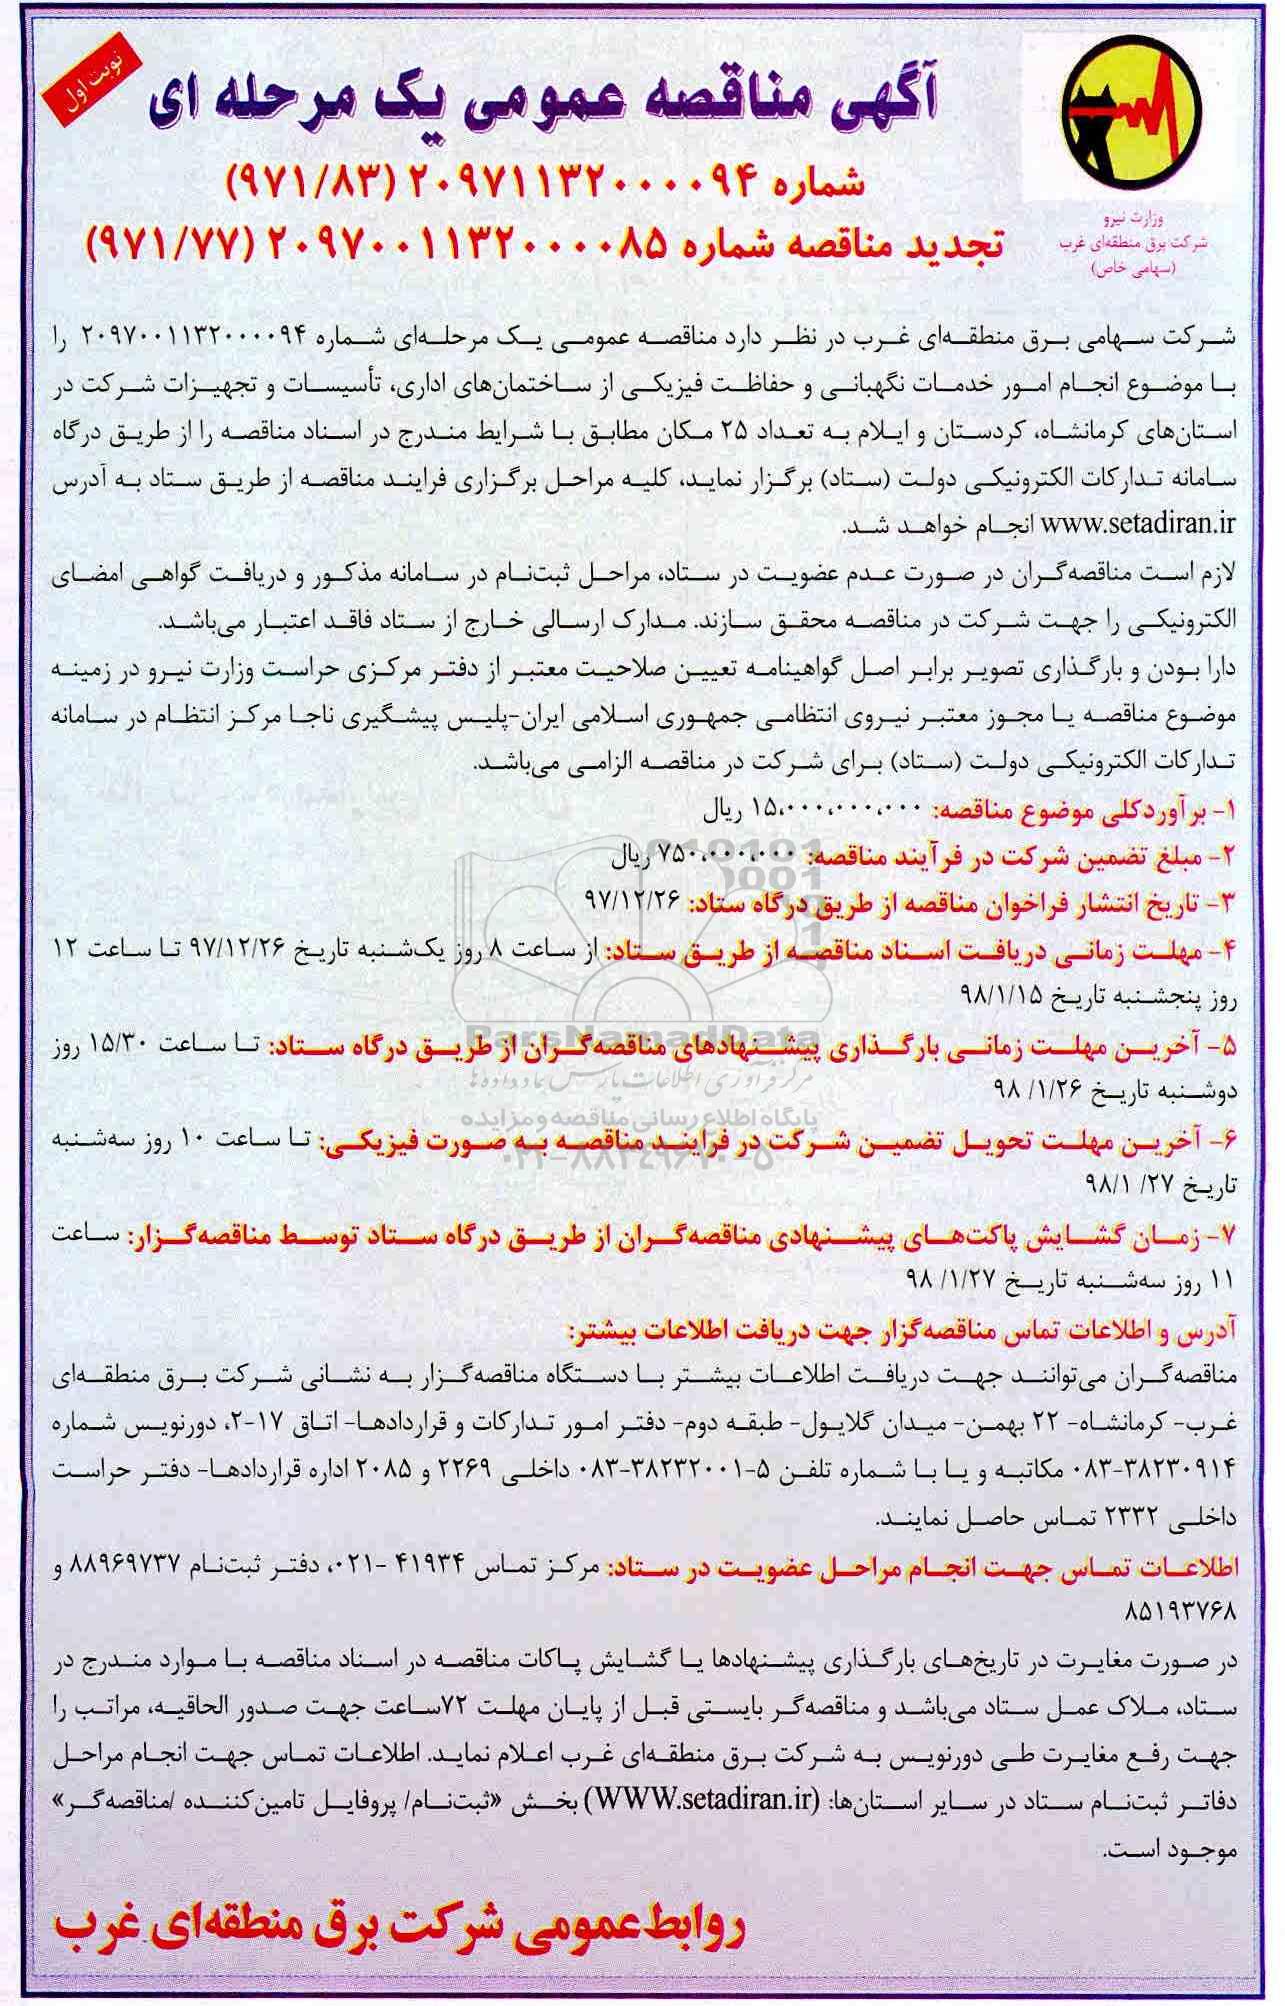 نوبت اول
آگهی مناقصه عمومی یک مرحله ای
شماره ۲۰۹۷۱۱۳۲۰۰۰۰۹۴ (۹۷۱/۸۳)
تجدید مناقصه شماره ۲۰۹۷۰۰۱۱۳۲۰۰۰۰۸۵ (۹۷۱/۷۷)
وزارت نیرو
شرکت برق منطقه‌ای غرب
(سهامی خاص)
شرکت سهامی برق منطقه‌ای غرب در نظر دارد مناقصه عمومی یک مرحله‌ای شماره ۲۰۹۷۰۰۱۱۳۲۰۰۰۰۹۴ را
با موضوع انجام امور خدمات نگهبانی و حفاظت فیزیکی از ساختمان‌های اداری، تأسیسات و تجهیزات شرکت در
استان‌های کرمانشاه، کردستان و ایلام به تعداد ۲۵ مکان مطابق با شرایط مندرج در اسناد مناقصه را از طریق درگاه
سامانه تدارکات الکترونیکی دولت (ستاد) برگزار نماید، کلیه مراحل برگزاری فرایند مناقصه از طریق ستاد به آدرس
www.setadiran.ir انجام خواهد شد.
لازم است مناقصه‌گران در صورت عدم عضویت در ستاد، مراحل ثبت‌نام در سامانه مذکور و دریافت گواهی امضای
الکترونیکی را جهت شرکت در مناقصه محقق سازند. مدارک ارسالی خارج از ستاد فاقد اعتبار می‌باشد.
دارا بودن و بارگذاری تصویر برابر اصل گواهینامه تعیین صلاحیت معتبر از دفتر مرکزی حراست وزارت نیرو در زمینه
موضوع مناقصه یا مجوز معتبر نیروی انتظامی جمهوری اسلامی ایران-پلیس پیشگیری ناجا مرکز انتظام در سامانه
تدارکات الکترونیکی دولت (ستاد) برای شرکت در مناقصه الزامی می‌باشد.
۱- برآورد کلی موضوع مناقصه: ۱۵،۰۰۰،۰۰۰،۰۰۰ ریال
۲- مبلغ تضمین شرکت در فرآیند مناقصه: ۷۵۰،۰۰۰،۰۰۰ ریال
۳- تاریخ انتشار فراخوان مناقصه از طریق درگاه ستاد: ۹۷/۱۲/۲۶
۴- مهلت زمانی دریافت اسناد مناقصه از طریق ستاد: از ساعت ۸ روز یک‌شنبه تاریخ ۹۷/۱۲/۲۶ تا ساعت ۱۲
روز پنجشنبه تاریخ ۹۸/۱/۱۵
ParsNamadData
۵- آخرین مهلت زمانی بارگذاری پیشنهادهای مناقصه‌گران از طریق درگاه ستاد: تا ساعت ۱۵/۳۰ روز
مرکز فرآوری اطلاعات پارس نماد داده‌ها
دوشنبه تاریخ ۹۸/۱/۲۶
پایگاه اطلاع رسانی مناقصه و مزایده
۶- آخرین مهلت تحویل تضمین شرکت در فرایند مناقصه به صورت فیزیکی: تا ساعت ۱۰ روز سه‌شنبه
۰۲۱-۸۸۳۴۹۶۷۰-۵
تاریخ ۹۸/۱/۲۷
۷- زمان گشایش پاکت‌های پیشنهادی مناقصه‌گران از طریق درگاه ستاد توسط مناقصه‌گزار: ساعت
۱۱ روز سه‌شنبه تاریخ ۹۸/۱/۲۷
آدرس و اطلاعات تماس مناقصه‌گزار جهت دریافت اطلاعات بیشتر:
مناقصه‌گران می‌توانند جهت دریافت اطلاعات بیشتر با دستگاه مناقصه‌گزار به نشانی شرکت برق منطقه‌ای
غرب- کرمانشاه- ۲۲ بهمن- میدان گلایول- طبقه دوم- دفتر امور تدارکات و قراردادها- اتاق ۱۷-۲، دورنویس شماره
۰۸۳-۳۸۲۳۰۹۱۴ مکاتبه و یا با شماره تلفن ۵-۰۸۳-۳۸۲۳۲۰۰۱ داخلی ۲۲۶۹ و ۲۰۸۵ اداره قراردادها- دفتر حراست
داخلی ۲۳۳۲ تماس حاصل نمایند.
اطلاعات تماس جهت انجام مراحل عضویت در ستاد: مرکز تماس ۴۱۹۳۴ -۰۲۱، دفتر ثبت‌نام ۸۸۹۶۹۷۳۷ و
۸۵۱۹۳۷۶۸
در صورت مغایرت در تاریخ‌های بارگذاری پیشنهادها یا گشایش پاکات مناقصه در اسناد مناقصه با موارد مندرج در
ستاد، ملاک عمل ستاد می‌باشد و مناقصه‌گر بایستی قبل از پایان مهلت ۷۲ساعت جهت صدور الحاقیه، مراتب را
جهت رفع مغایرت طی دورنویس به شرکت برق منطقه‌ای غرب اعلام نماید. اطلاعات تماس جهت انجام مراحل
دفاتر ثبت‌نام ستاد در سایر استان‌ها: (WWW.setadiran.ir) بخش «ثبت‌نام/ پروفایل تامین‌کننده /مناقصه‌گر»
موجود است.
روابط عمومی شرکت برق منطقه‌ای غرب